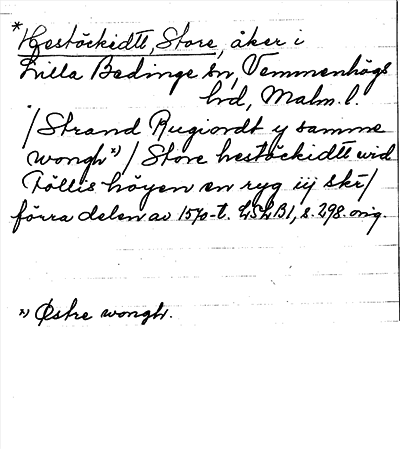 *Hestöckidtt, Store, åker i
Lilla Bedinge sn, Vemmenhögs
hd, Malm. l.
/Strand Rugiordt y samme
wongh *)/ Store hestöckidtt wid
Föllis höyen en ryg iij skr/
förra delen av 1570-t. LSLB1, s. 298. orig.
*) Østre wongh.